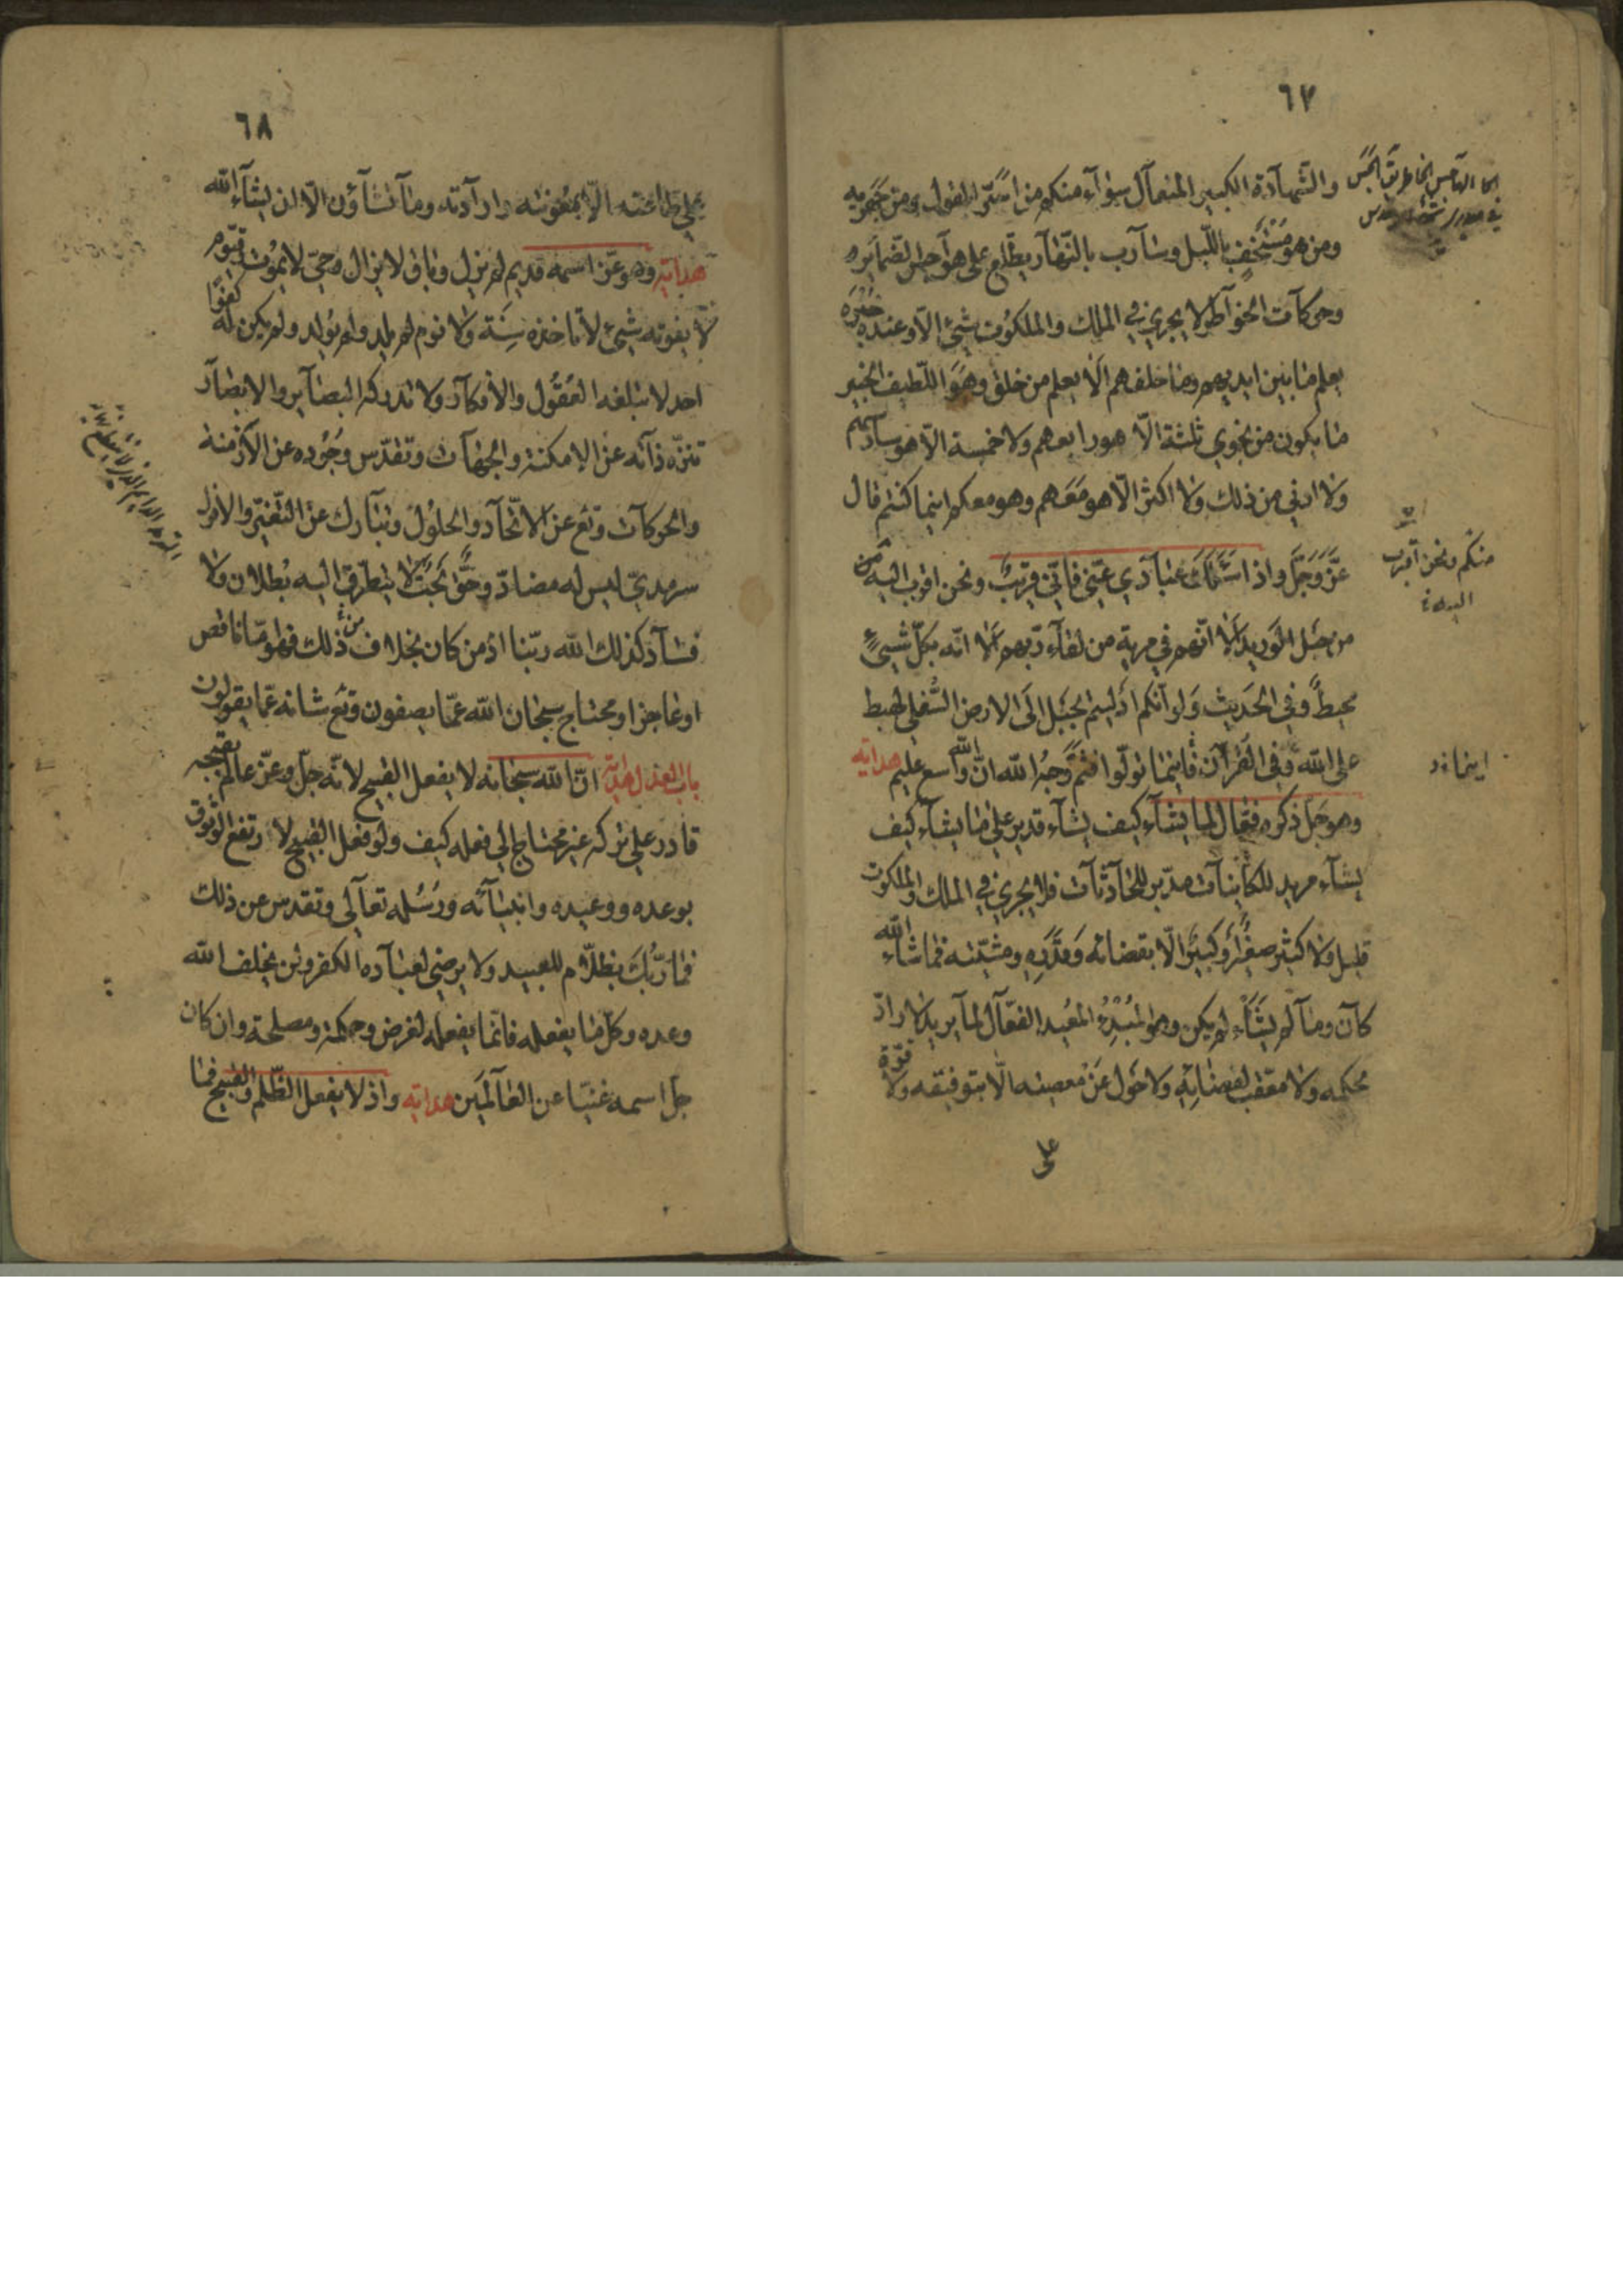 ٦٧
والشهادة الكبير المتعال سوآء منكم من اسرّ القول ومن جهر به
ومن هو مستخف باللّيل وسارب بالنّهار يطّلع على هواجس الضّمائر
وحركات الخواطر لا يجري في الملك والملكوت شيئ الّا وعنده خبره
يعلم ما بين ايديهم وما خلفهم الا يعلم من خلق وهو اللّطيف الخبير
ما يكون من نجوي ثلثة الّا هو رابعهم ولا خمسة الّا هو سادسهم
ولا ادنى من ذلك ولا اكثر الّا هو معهم وهو معكم اينما كنتم قال
عزّ وجلّ واذا سئلك عبادي عنّي فانّي قريب ونحن اقرب اليه من
من حبل الوريد الا انّهم في مرية من لقآء ربّهم الا انّه بكلّ شيئ
محيط وفي الحديث ولو انّكم ادليتم بحبل الى الارض السّفلى لهبط
على الله وفي القرآن فاينما تولّوا فثمّ وجه الله انّ الله واسع عليم هداية
وهو جل ذكره فعّال لما يشآء كيف يشآء قدير على ما يشآء كيف
يشآء مريد للكائنات مدبّر للحادثات فلا يجري في الملك والملكوت
قليل ولا كثير صغير او كبير الّا بقضائه وقدره ومشيّته فما شاء الله
كان وما لم يشأ لم يكن وهو المبدئ المعيد الفعّال لما يريد لا رادّ
لحكمه ولا معقّب لقضايه ولا حول عن معصيته الّا بتوفيقه ولا قوّة
على
منكم ونحن اقرب
اليه
اينما
٦٨
على طاعته الّا بمعونته وارادته وما تشاؤن الّا ان يشآء الله
هداية وهو عزّ اسمه قديم لم يزل وباق لا يزال وحيّ لا يموت قيّوم
لا يفوته شيئ لا تاخذه سنة ولا نوم لم يلد ولم يولد ولم يكن له كفوا
احد لا تبلغه العقول والافكار ولا تدركه البصائر والابصار
تنزّه ذاته عن الامكنة والجهات وتقدّس وجوده عن الازمنة
والحركات وتع عن الاتّحاد والحلول وتبارك عن التّغيّر والافول
سرمديّ ليس له مضادّ وحقّ بحت لا يتطرّق اليه بطلان ولا
فساد كذلك الله ربّنا اذ من كان بخلاف ذلك فهو امّا ناقص
او عاجز او محتاج سبحان الله عمّا يصفون وتع شانه عمّا يقولون
باب العدل هداية انّ الله سبحانه لا يفعل القبيح لانّه جلّ وعزّ عالم بقبحه
قادر على تركه غير محتاج الى فعله كيف ولو فعل القبيح لارتفع الوثوق
بوعده ووعيده وانبيائه ورسله تعالى وتقدس عن ذلك
فما ربّك بظلّام للعبيد ولا يرضى لعباده الكفر ولن يخلف الله
وعده وكل ما يفعله فانّما يفعله لغرض وحكمة ومصلحة وان كان
جلّ اسمه غنيّا عن العالمين هداية واذ لا يفعل الظّلم والقبيح فما